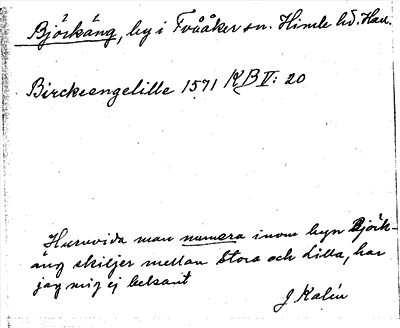 Björkäng, by i Tvååker sn. Himle hd. Hall.
Birckeengelille 1571 KB V: 20
Huruvida man numera inom byn Björk-
äng skiljer mellan Stora och Lilla, har
jag mig ej bekant
J Kalén